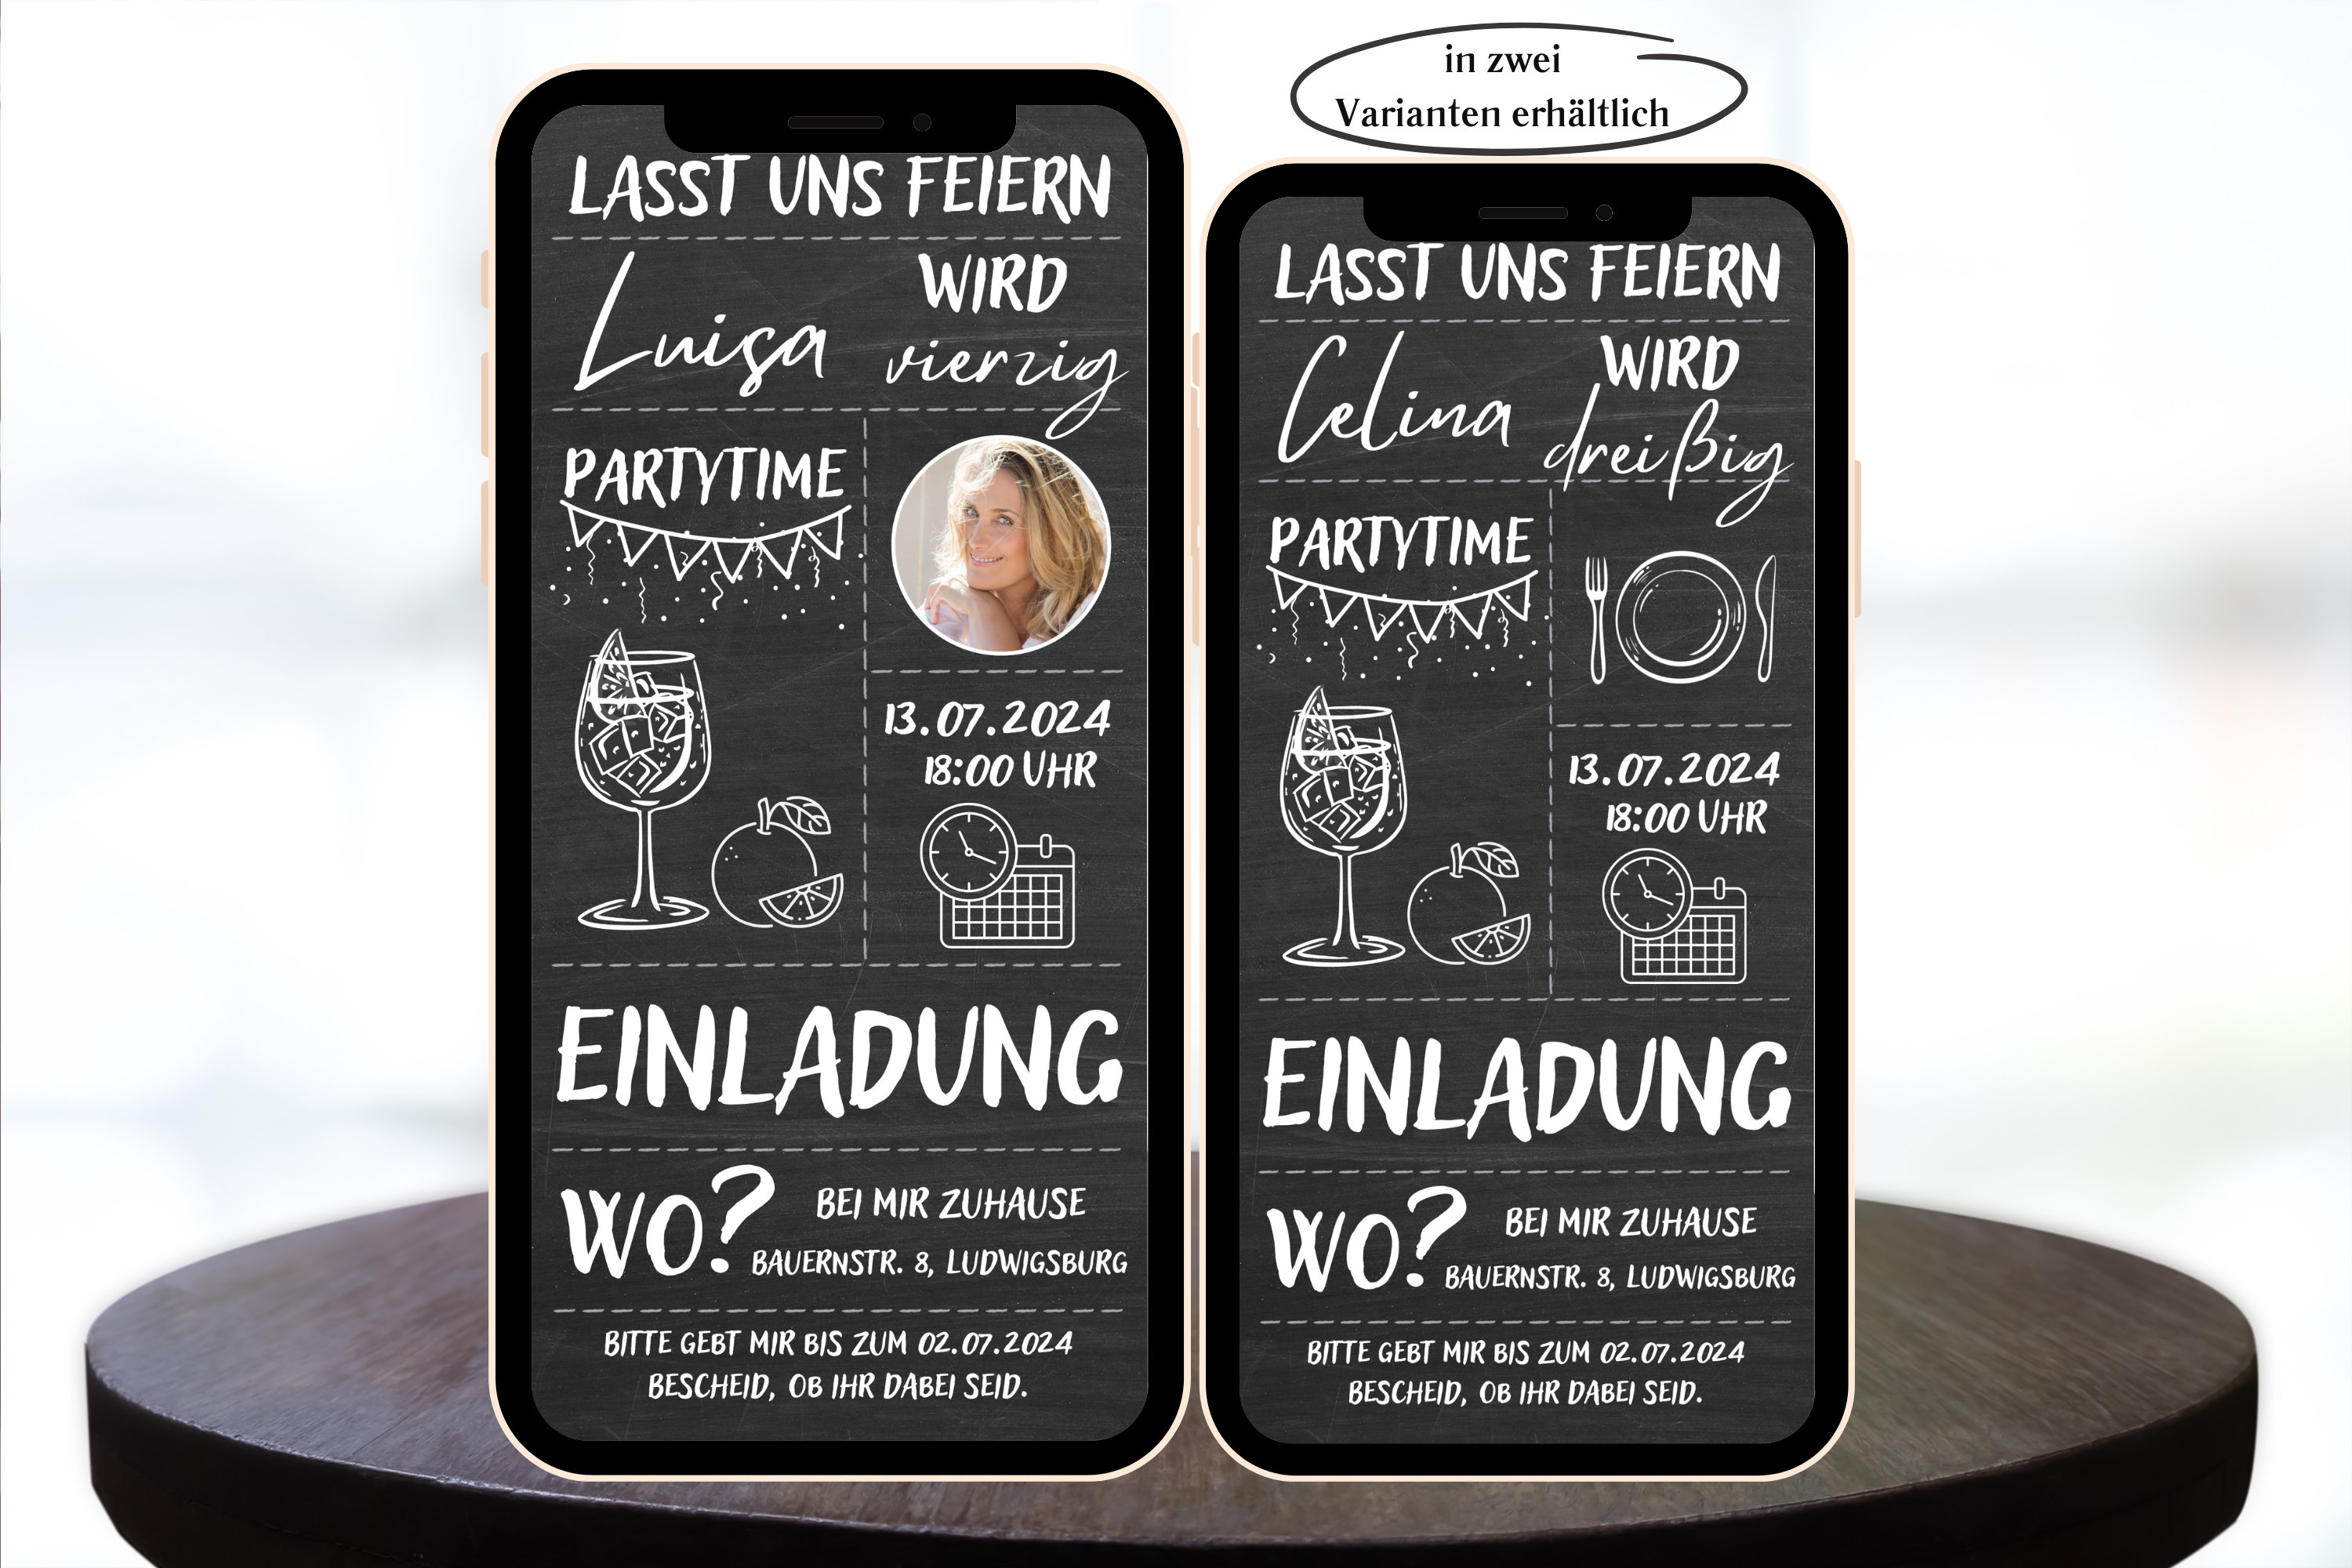 in zwei
Varianten erhältlich
LASST UNS FEIERN
Luisa
WIRD
vierzig
PARTYTIME
13.07.2024
18:00 UHR
EINLADUNG
WO?
BEI MIR ZUHAUSE
BAUERNSTR. 8, LUDWIGSBURG
BITTE GEBT MIR BIS ZUM 02.07.2024
BESCHEID, OB IHR DABEI SEID.
LASST UNS FEIERN
Celina
WIRD
dreißig
PARTYTIME
13.07.2024
18:00 UHR
EINLADUNG
WO?
BEI MIR ZUHAUSE
BAUERNSTR. 8, LUDWIGSBURG
BITTE GEBT MIR BIS ZUM 02.07.2024
BESCHEID, OB IHR DABEI SEID.